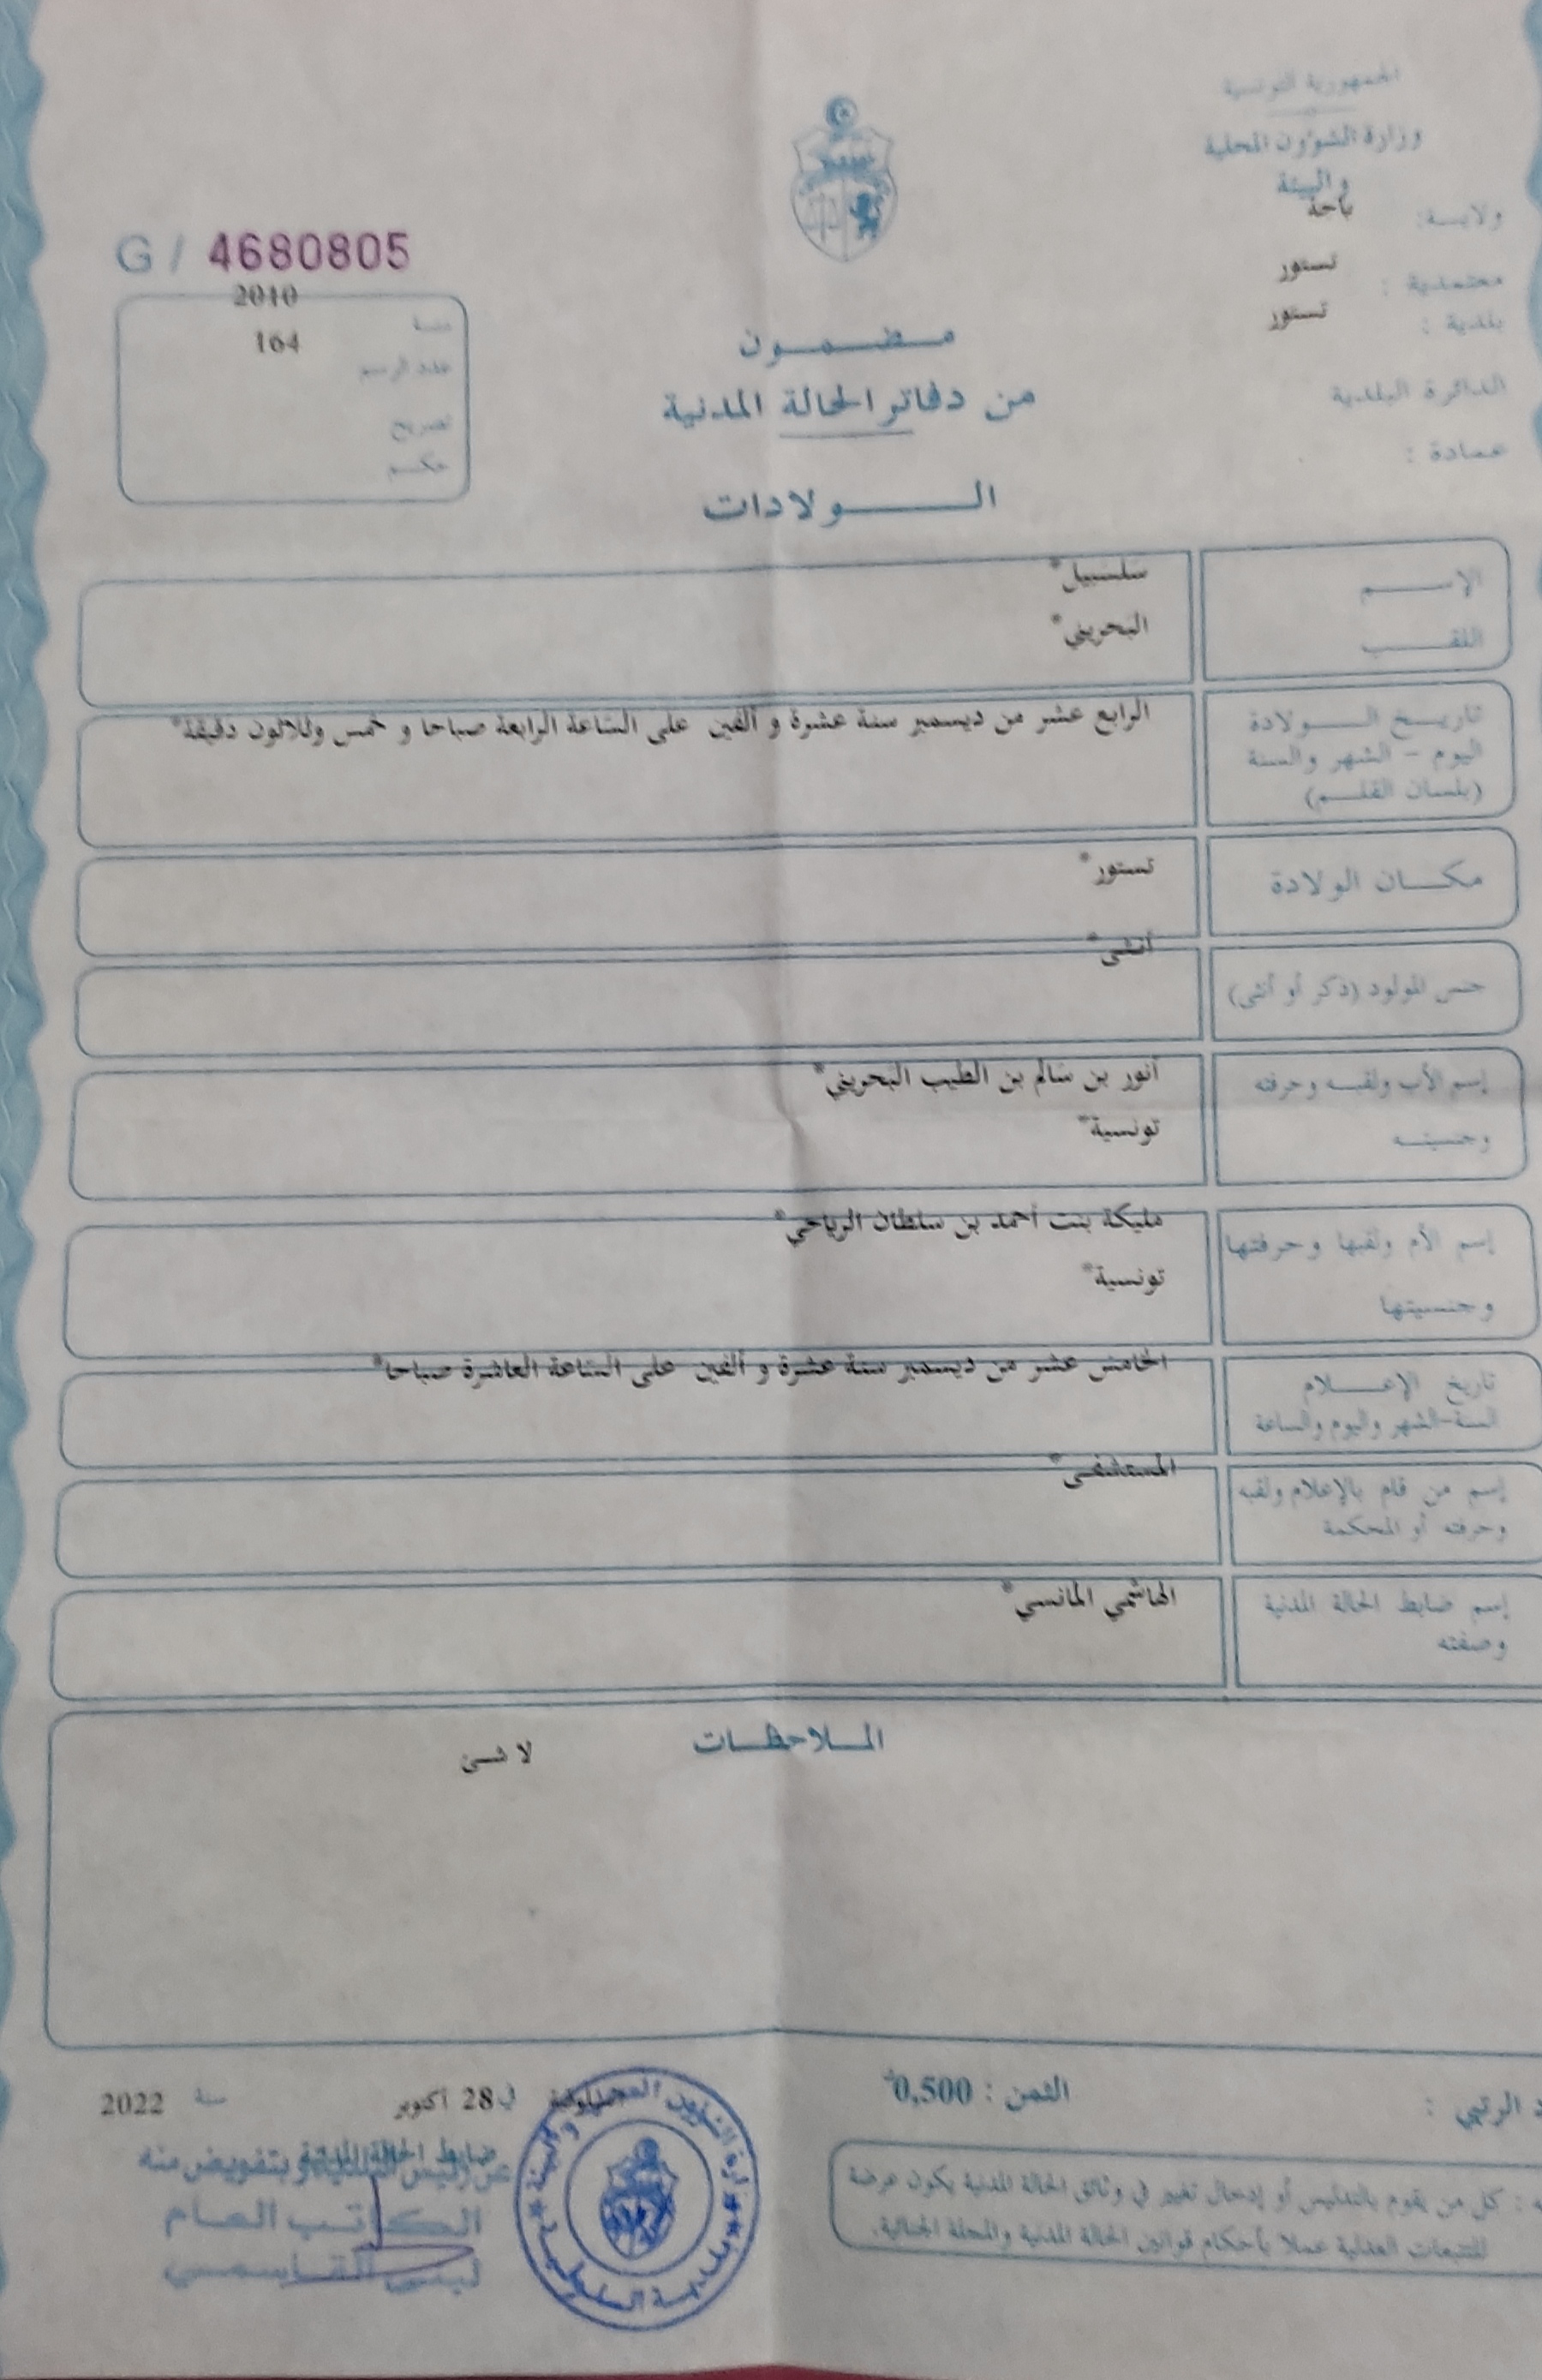 الجمهورية التونسية
وزارة الشؤون المحلية
والبيئة
ولايـــة: باجة
معتمدية : تستور
بلدية : تستور
الدائرة البلدية
عمادة :
G / 4680805
سنة 2010
عدد الرسم 164
تصريح
حكــم
مـــضـــمـــون
من دفاتر الحالة المدنية
الــــــولادات
الإســـــم سلسبيل*
اللقـــب البحريني*
تاريـــخ الـــــولادة الرابع عشر من ديسمبر سنة عشرة و ألفين على الساعة الرابعة صباحا و خمس وثلاثون دقيقة*
اليوم - الشهر والسنة
(بلسان القلـــم)
مكـــان الولادة تستور*
جنس المولود (ذكر أو أنثى) أنثى*
إسم الأب ولقبـه وحرفته أنور بن سالم بن الطيب البحريني*
وجنسيتــه تونسية*
إسم الأم ولقبها وحرفتها مليكة بنت أحمد بن سلطان الرياحي*
وجنسيتها تونسية*
تاريخ الإعـــلام الخامس عشر من ديسمبر سنة عشرة و ألفين على الساعة العاشرة صباحا*
السنة-الشهر واليوم والساعة
إسم من قام بالإعلام ولقبه المستشفى*
وحرفته أو المحكمة
إسم ضابط الحالة المدنية الهاشمي المانسي*
وصفته
المـــلاحظـــات
لا شئ
الرتبي :
الثمن : 0,500
كل من يقوم بالتدليس أو إدخال تغيير في وثائق الحالة المدنية يكون عرضة
للتتبعات العدلية عملا بأحكام قوانين الحالة المدنية والمجلة الجنائية.
في 28 أكتوبر سنة 2022
ضابط الحالة المدنية
عن رئيس البلدية وبتفويض منه
الكاتب العام
لبنى القاسمي